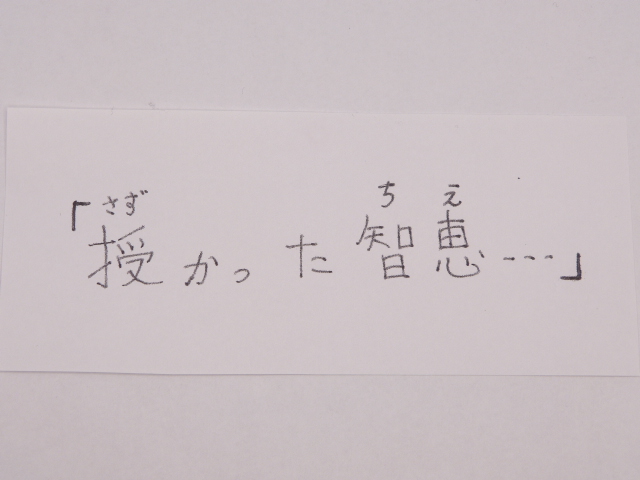 さず ちえ
「授かった智恵…」